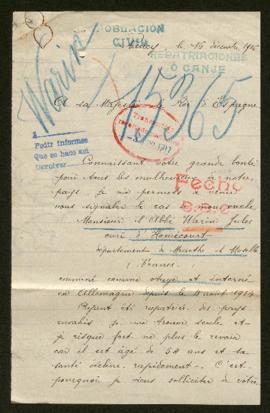 POBLACIÓN
CIVIL
le 16 décembre 1916
REPATRIACIONES
Ó CANJE
Warin
15365
A Sa Majesté le Roi d'Espagne
Pedir informes
Que se haga así
Connaissant votre grande bonté
pour tous les malheureux de notre
pays je me permets de venir
vous signaler le cas de mon oncle
Fecho
Monsieur l'Abbé Warin Jules
curé d'Homécourt
département de Meurthe et Moselle
(France)
emmené comme otage et interné
en Allemagne depuis le août 1914
rapatriée des pays
envahis je me trouve seule et
je risque fort ne plus le revoir
car il est âgé de 58 ans et sa
santé décline rapidement. C'est
pourquoi je viens solliciter de votre